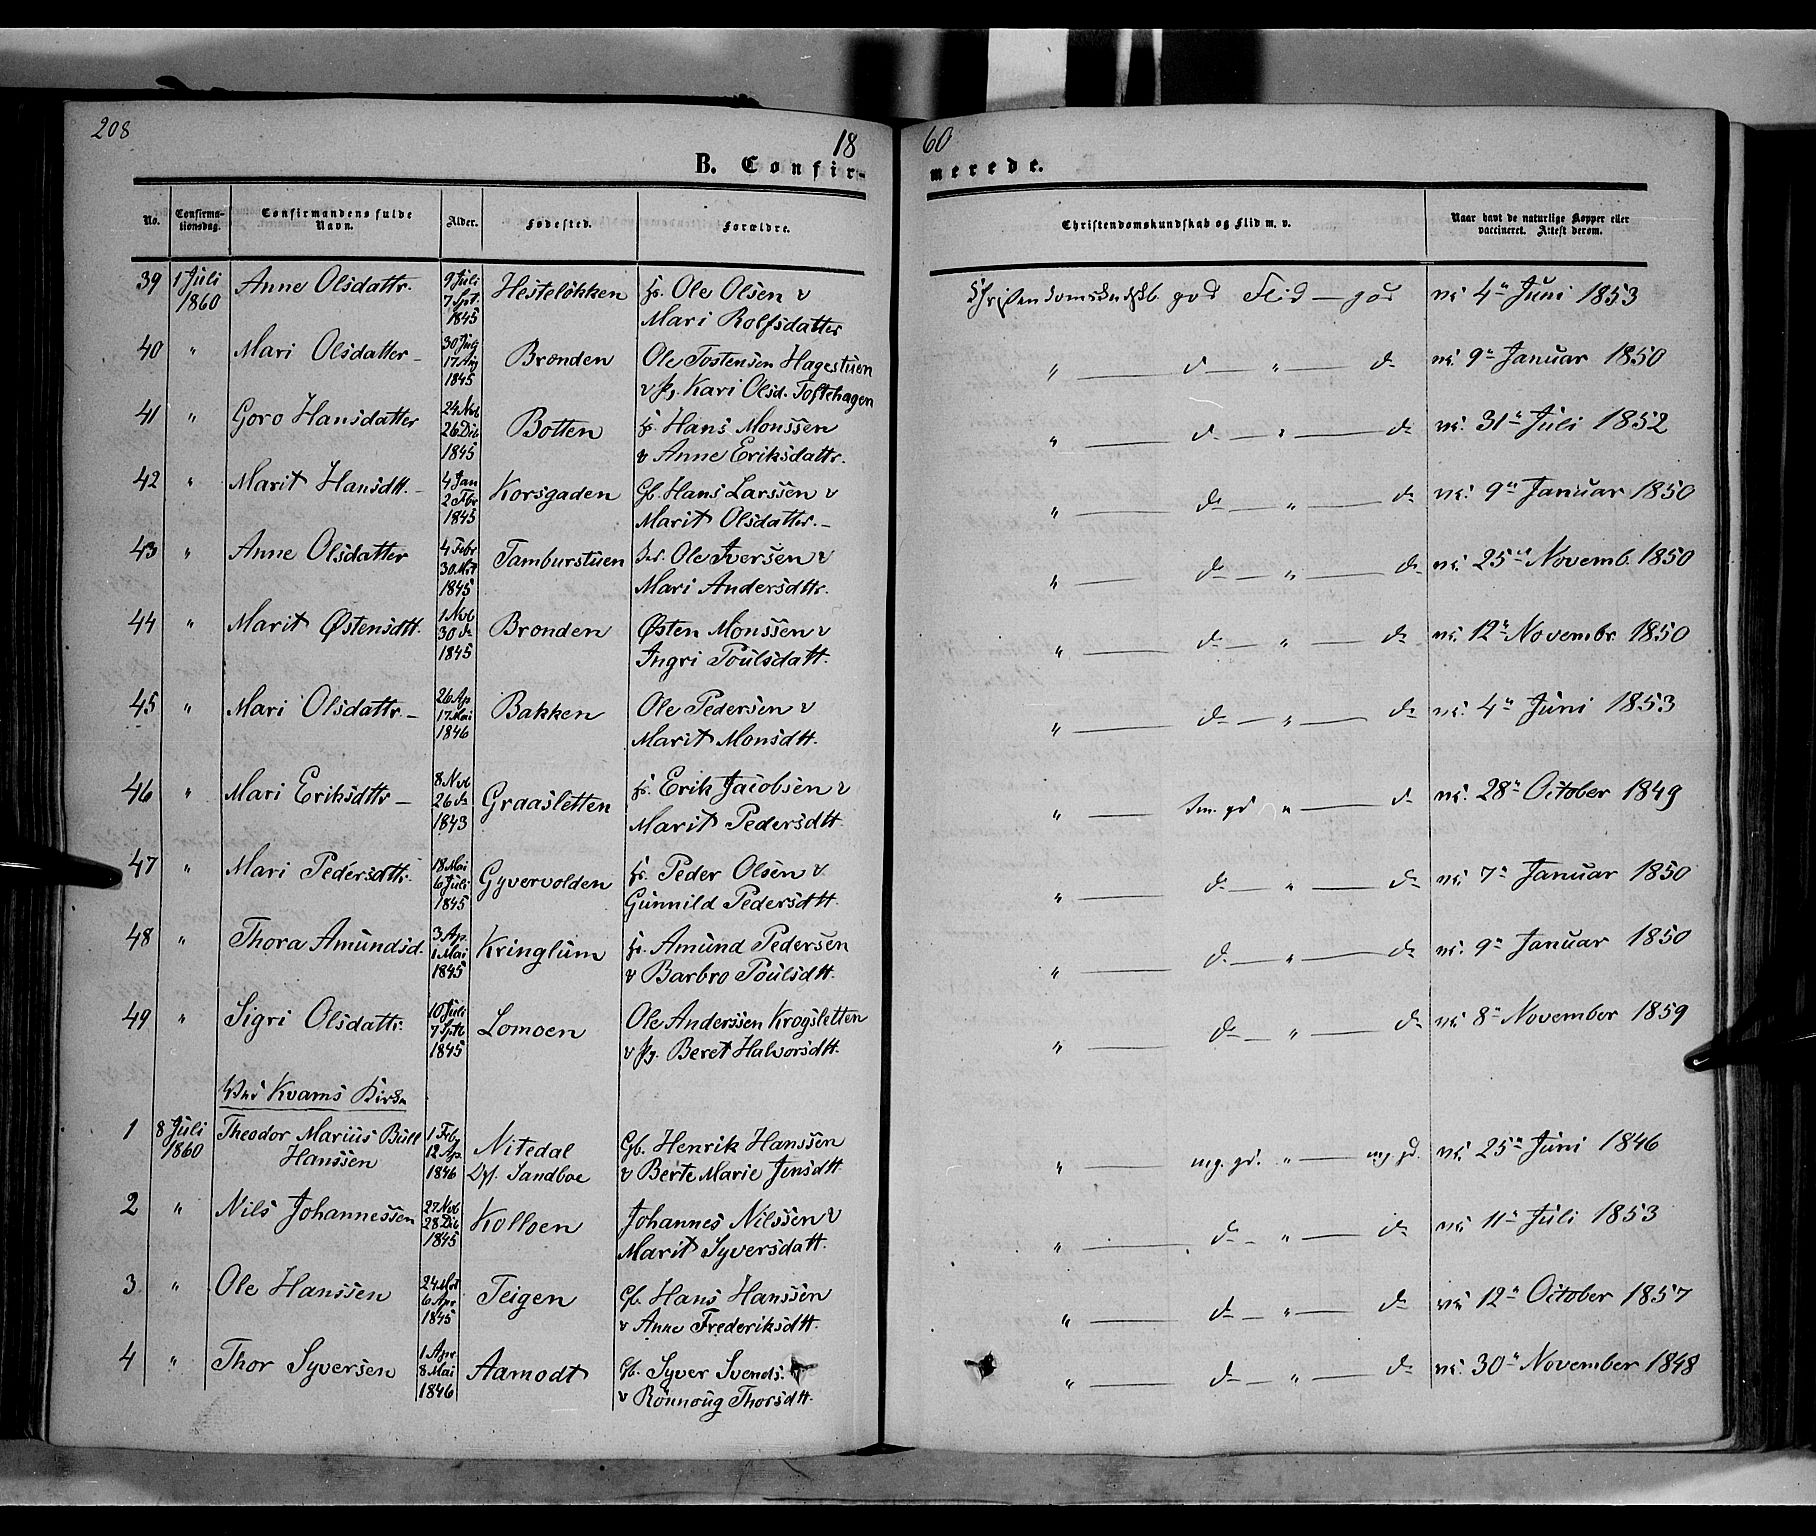 208
18 60
B. Confirmerede.
No. Confirmationsdag. Confirmandens fulde Navn. Alder. Fødested. Forældre. Christendomskundskab og Flid m. v. Naar havt de naturlige Kopper eller vaccineret. Attest derom.
39 1 Juli Anne Olsdattr. 9 Juli Hesteløkken Ole Olsen v god Flid — god 4 Juni 1853
1860 7 Spt. 1845 Mari Rolfsdatter
40 " Mari Olsdatter 30 July Brønden Ole Tostensen Hagestuen " d " d 9 Januar 1850
17 Aug 1845 v Kari Olsd. Toftehagen
41 " Goro Hansdatter 24 Nov Botten Hans Monssen " d " d 31 Juli 1852
26 Dec 1845 v Anne Eriksdattr.
42 " Marit Hansdtt. 4 Jan Korsgaden Gb. Hans Larssen v " d " d 9 Januar 1850
2 Febr 1845 Marit Olsdattr.
43 " Anne Olsdatter 4 Febr Tamburstuen Ole Iversen v " d " d 25 Novemb. 1850
30 1845 Mari Andersdttr.
44 " Marit Østensdtt. 1 Nov Brønden Østen Monssen v " d " d 12 Novembr. 1850
30 d 1845 Ingri Poulsdatt.
45 " Mari Olsdattr. 26 Ap Bakken Ole Pedersen v " d " d 4 Juni 1853
17 Mai 1846 Marit Monsdtt.
46 " Mari Eriksdttr 8 Nov Graasletten Erik Jacobsen v " gd " d 28 October 1849
26 d 1843 Marit Pedersdtt.
47 " Mari Pedersdttr. 18 Mai Gyvervolden Peder Olsen v " d " d 7 Januar 1850
6 Juli 1845 Gunnild Pedersdtt.
48 " Thora Amundsd. 3 Ap. Kringlum Amund Pedersen " d " d 9 Januar 1850
1 Mai 1845 v Barbro Poulsdtt.
49 " Sigri Olsdattr. 10 Juli Lomoen Ole Anderssen Krogsletten " d " d 8 November 1859
7 Sptb 1845 v Beret Halvorsdtt.
Ved Kvams Kirke
1 8 Juli Theodor Marius Bull 1 Feb Nitedal Gb. Henrik Hanssen " mg. gd. " mg gd. 25 Juni 1846
1860 Hanssen 12 Ap. 1846 Sandboe v Berte Marie Jensdtt.
2 " Nils Johannessen 27 Nov Kolloen Johannes Nilssen v " d " d 11 Juli 1853
28 Dec 1845 Marit Syversdatt.
3 " Ole Hanssen 24 Teigen Gb. Hans Hanssen " d " d 12 October 1857
6 Apr 1845 v Anne Frederiksdtt.
4 " Thor Syversen 1 Apr Aamodt Gb. Syver Svends. " d " d 30 November 1848
8 Mai 1846 v Rönnoug Thorsdtt.